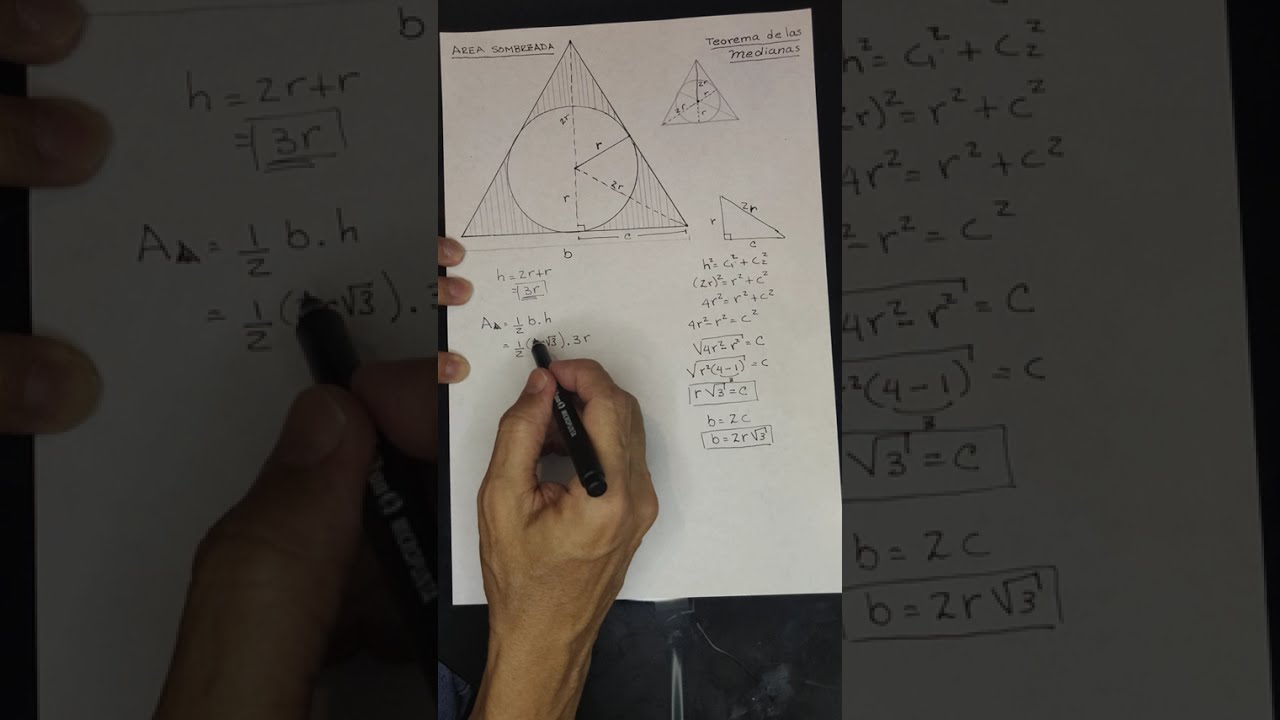 AREA SOMBREADA
Teorema de las
Medianas
2r
r
2r
r
c
b
2r
r
2r
r
r
2r
c
h = 2r+r
= 3r
A = 1/2 b.h
= 1/2 ( √3).3r
h² = c₁² + c₂²
(2r)² = r² + c²
4r² = r² + c²
4r² - r² = c²
√4r² - r² = c
√r²(4-1) = c
3
r√3 = c
b = 2c
b = 2r√3